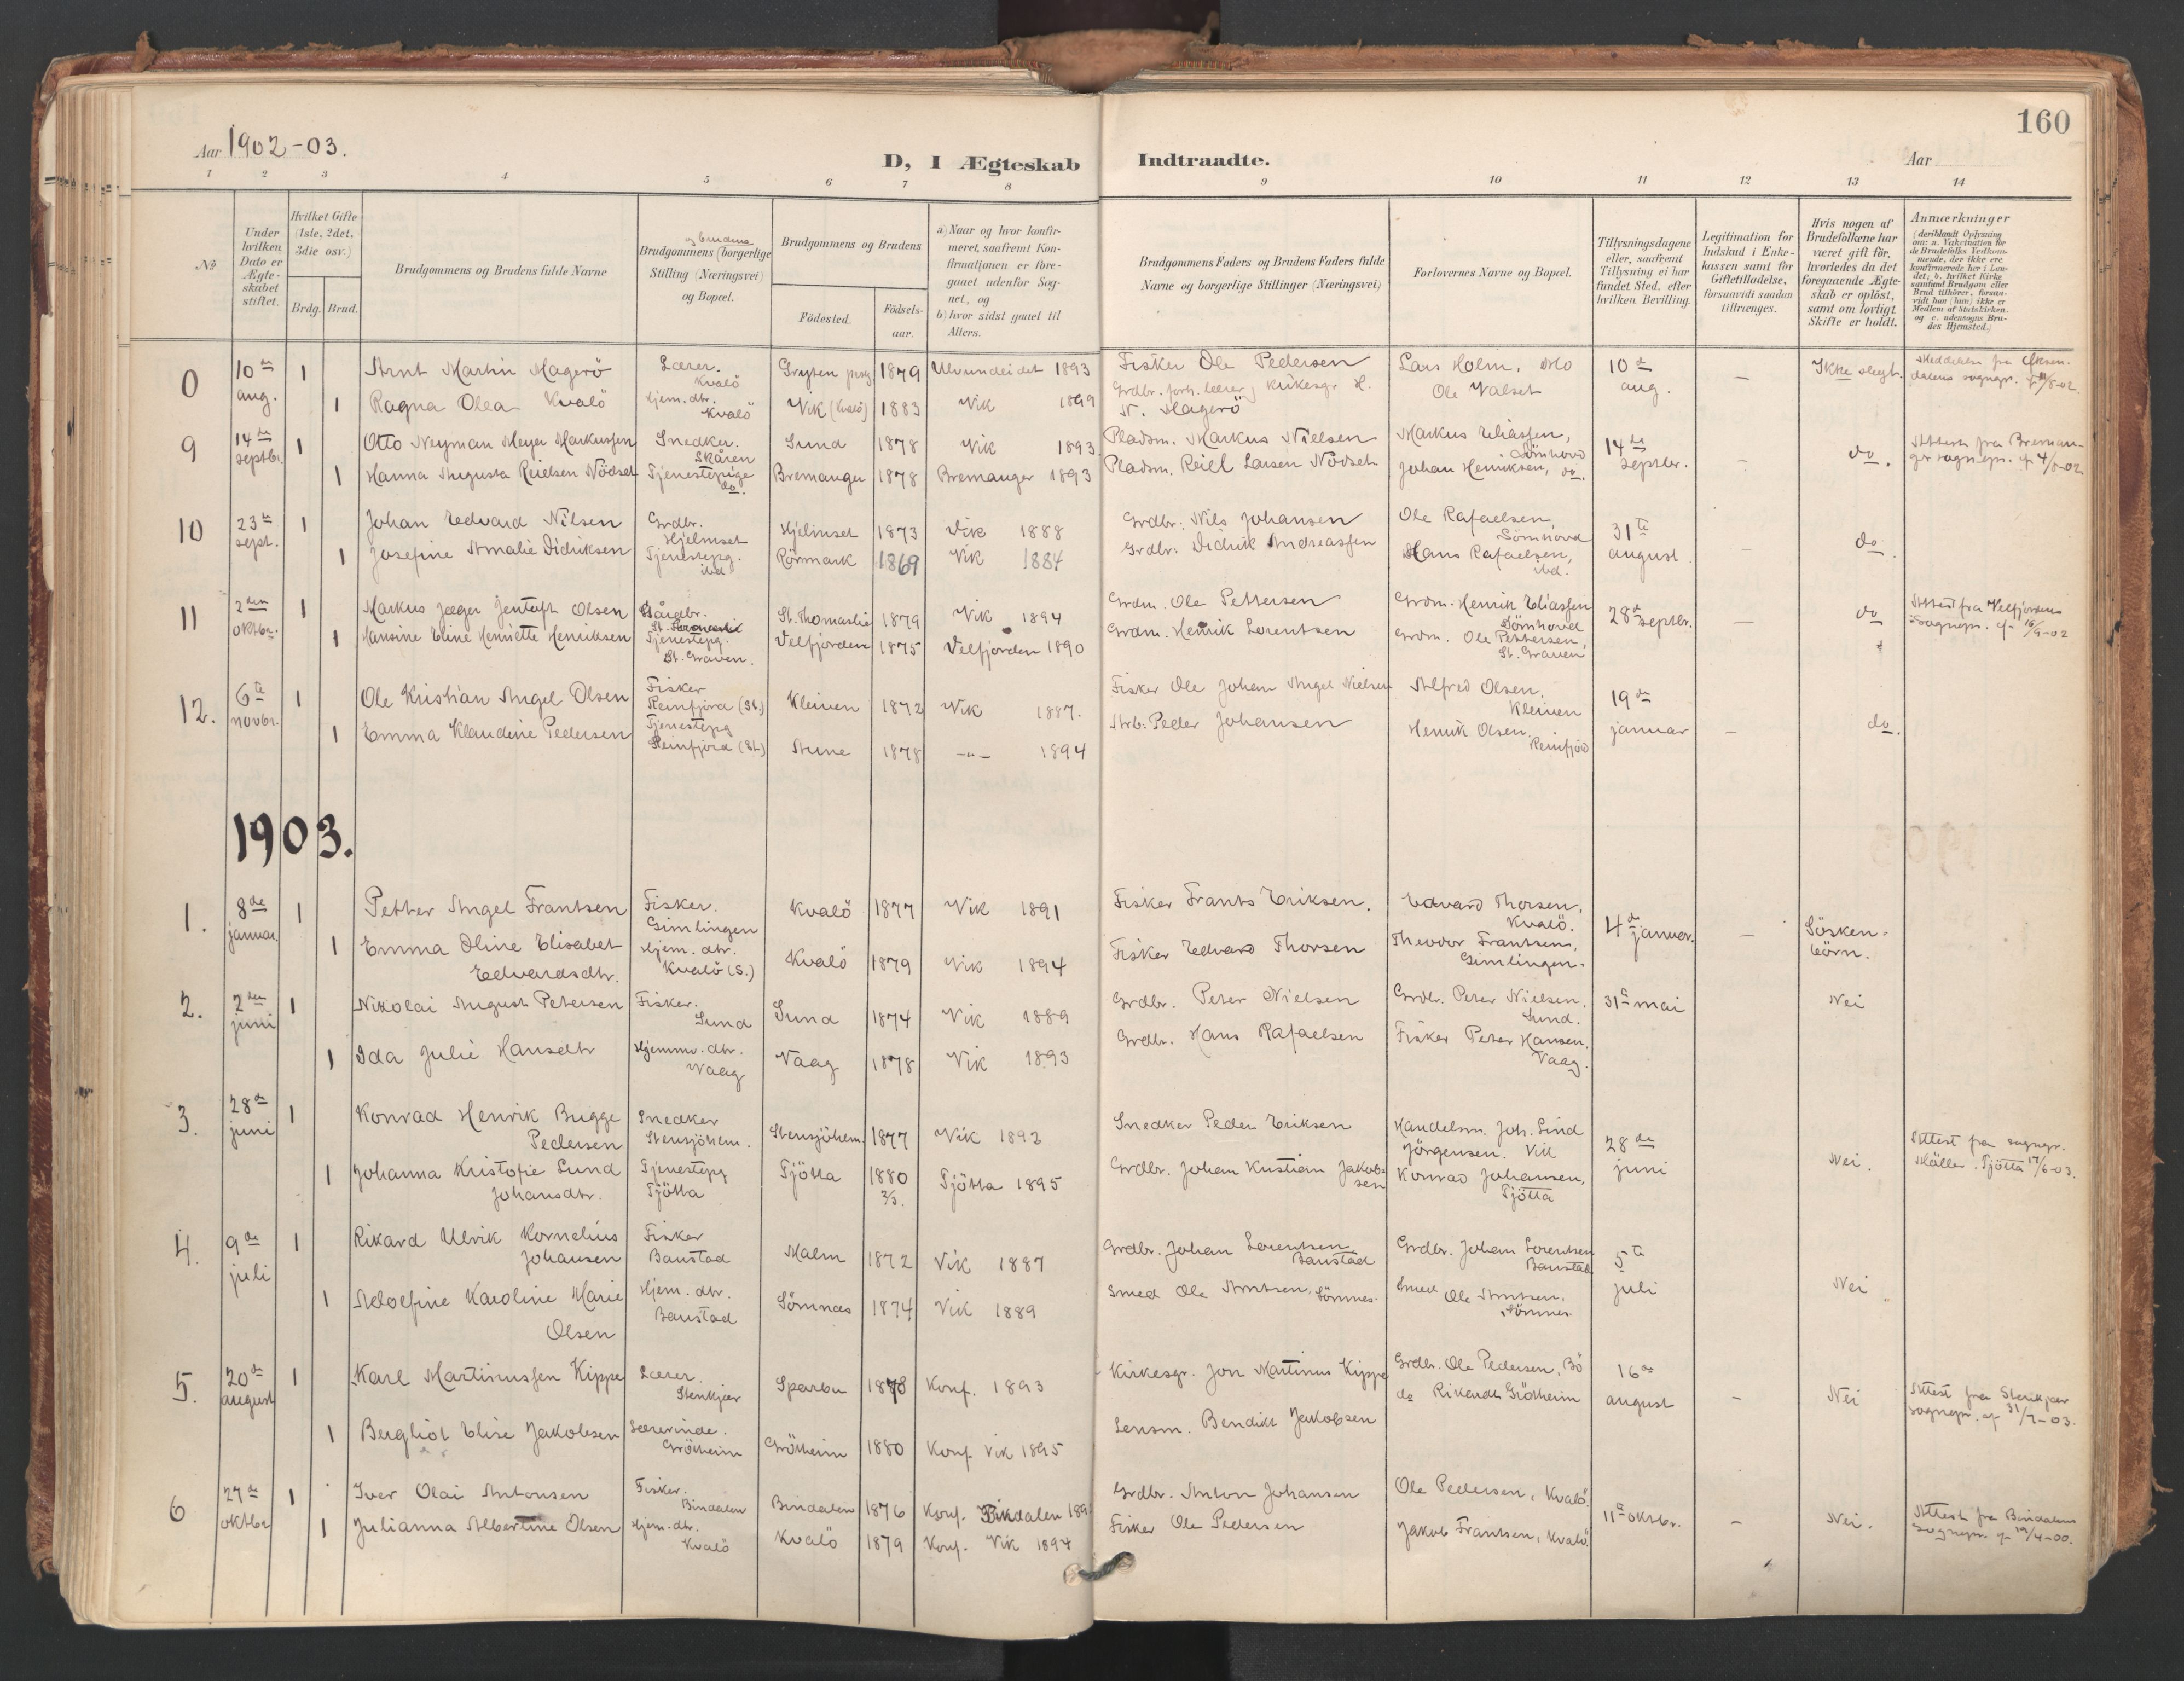 160
Aar 1902-03.
D, I Ægteskab Indtraadte.
Aar
1 2 3 4 5 6 7 8 9 10 11 12 13 14
No.
Under hvilken Dato er Ægteskabet stiftet.
Hvilket Gifte (1ste, 2det, 3die osv.)
Brdg. Brud.
Brudgommens og Brudens fulde Navne
og brudens
Brudgommens (borgerlige Stilling (Næringsvei) og Bopæl.
Brudgommens og Brudens
Födested.
Födselsaar.
a) Naar og hvor konfirmeret, saafremt Konfirmationen er foregaaet udenfor Sognet, og
b) hvor sidst gaaet til Alters.
Brudgommens Faders og Brudens Faders fulde Navne og borgerlige Stillinger (Næringsvei)
Forlovernes Navne og Bopæl.
Tillysningsdagene eller, saafremt Tillysning ei har fundet Sted, efter hvilken Bevilling.
Legitimation for Indskud i Enkekassen samt for Giftetilladelse, forsaavidt saadan tiltrænges.
Hvis nogen af Brudefolkene har været gift för, hvorledes da det foregaaende Ægteskab er oplöst, samt om lovligt Skifte er holdt.
Anmærkninger (deriblandt Oplysning om: a. Vakcination for de Brudefolks Vedkommende, der ikke ere konfirmerede her i Landet; b. hvilket Kirkesamfund Brudgom eller Brud tilhörer, forsaavidt hun (han) ikke er Medlem af Statskirken, og c. udensogns Brudes Hjemsted.)
0 10de aug. 1 Arnt Martin Magerö Lærer. Kvalö Gryten 1879 Ulvundeidet 1893 Fisker Ole Pedersen Lars Holm, Mo 10de aug. — Ikke slegt.
1 Ragna Olea Kvalö Hjem. dtr. Kvalö Vik (Kvalö) 1883 Vik 1899 Grdbr. forh. lærer, kirkesgr. H. N. Magerö Ole Valset
9 14de septbr. 1 Otto Neyman Meyer Markussen Snedker. Skåren Sund 1878 Vik 1893. Pladsm. Markus Nielsen Markus Eliassen, Sömhovd 14de septbr. — do. Attest fra Bremanger sognepr. af 4/8-02
1 Hanna Augusta Reielsen Nödset Tjenestepige do. Bremanger 1878 Bremanger 1893 Pladsm. Reiel Larsen Nödset Johan Henriksen, do.
10 23de sept. 1 Johan Edvard Nilsen Grdbr. Hjelmset Hjelmset 1873 Vik 1888 Grdbr: Nils Johansen Ole Rafaelsen, Sömhovd 31te august — do.
1 Josefine Amalie Didriksen Tjenestepg. ibd. Rörmark 1869 Vik 1884 Grdbr: Didrik Andreassen Hans Rafaelsen, ibd.
11 2den oktbr. 1 Markus Jæger Jentoft Olsen Gårdbr. St. Thomaslie 1879 Vik 1894 Grdm. Ole Pettersen Grdm. Henrik Eliassen Sömhovd 28de septbr. do Attest fra Velfjordens sognepr. af 16/9-02
1 Hansine Eline Henriette Henriksen Tjenestepg. St. Graven. Velfjorden 1875 Velfjorden 1890 Grdm. Henrik Lorentsen Grdm. Ole Pettersen, St. Graven
12. 6te novbr. 1 Ole Kristian Angel Olsen Fisker Reinfjord (St.) Kleiven 1872 Vik 1887. Fisker Ole Johan Angel Nielsen Alfred Olsen, Kleiven 19de januar — do.
1 Emma Klaudine Pedersen Tjenestepg Reinfjord (St.) Stune 1878 -"- 1894 Arb: Peder Johansen Henrik Olsen. Reinfjord
1903.
1. 8de januar. 1 Petter Angel Frantsen Fisker. Gimlingen Kvalö 1877 Vik 1891 Fisker Frants Eriksen. Edvard Thorsen, Kvalö. 4de januar. — Sösken-börn.
1 Emma Oline Elisabet Edvardsdtr. Hjem. dtr. Kvalö (S.) Kvalö 1879 Vik 1894 Fisker Edvard Thorsen Theodor Frantsen, Gimlingen.
2. 2den juni 1 Nikolai August Petersen Fisker. Sund Sund 1874 Vik 1889 Grdbr. Peter Nielsen Grdbr. Peter Nielsen, Sund. 31te mai Nei
1 Ida Julie Hansdtr Hjemmv. dtr. Vaag Vaag 1878 Vik 1893 Grdbr. Hans Rafaelsen Fisker Peter Hansen. Vaag.
3. 28de juni 1 Konrad Henrik Bugge Pedersen Snedker Stensjöhlm. Stensjöhlm. 1877 Vik 1892 Snedker Peder Eriksen Handelsm. Joh. Lind Jörgensen. Vik 28de juni Nei. Attest fra sogngr. Möller. Tjötta 17/6-03.
1 Johanna Kristofie Lund Johansdtr. Tjenestepg Tjötta Tjötta 1880 2/3. Tjötta 1895 Grdbr. Johan Kristian Jakobsen Konrad Johansen, Tjötta
4. 9de juli 1 Rikard Ulrik Kornelius Johansen Fisker Baustad Malm 1872 Vik 1887 Grdbr. Johan Lorentsen Baustad Grdbr. Johan Lorentsen Baustad 5te juli Nei
1 Adolfine Karoline Marie Olsen Hjem. dtr. Baustad Sömnæs 1874 Vik 1889 Smed Ole Arntsen. Sömnes. Smed Ole Arntsen, Sömnes.
5. 20de august 1 Karl Martinussen Kippe Lærer. Stenkjær Sparbu 1878 Konf. 1893 Kirkesgr. Jon Martinus Kippe Grdbr. Ole Pedersen, Bö 16de august — Nei Attest fra Stenkjær sognepr. af 31/7-03.
1 Bergliot Elise Jakobsen Lærerinde. Grötheim Grötheim 1880 Konf. Vik 1895 Lensm. Bendikt Jakobsen do Rikardt Grötheim
6 27de oktbr 1 Iver Olai Antonsen Fisker. Bindalen Bindalen 1876 Konf. Bindalen 189 Grdbr. Anton Johansen Ole Pedersen, Kvalö. 11te oktbr. — Nei. Attest fra Bindalens Sognepr. af 19/4-00.
1 Julianna Albertine Olsen Hjem. dtr. Kvalö Kvalö 1879 Konf. Vik 1894 Fisker Ole Pedersen Jakob Frantsen, Kvalö.